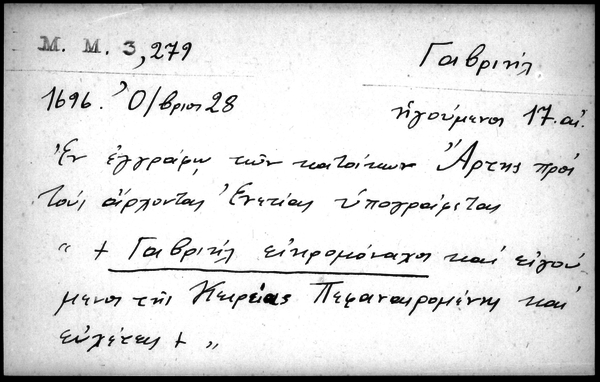 Μ. Μ. 3, 279
Γαβριήλ
1696. Ὀ/βριος 28
ἡγούμενος 17. αἰ.
Ἐν ἐγγράφῳ τῶν κατοίκων Ἄρτης πρὸς
τοὺς ἄρχοντας Ἐνετίας ὑπογράφεται
" + Γαβριήλ εἰερομόναχος καὶ εἰγού-
μενος τῆς Κειρείας Πεφανερομένης καὶ
εὐχέτης + "